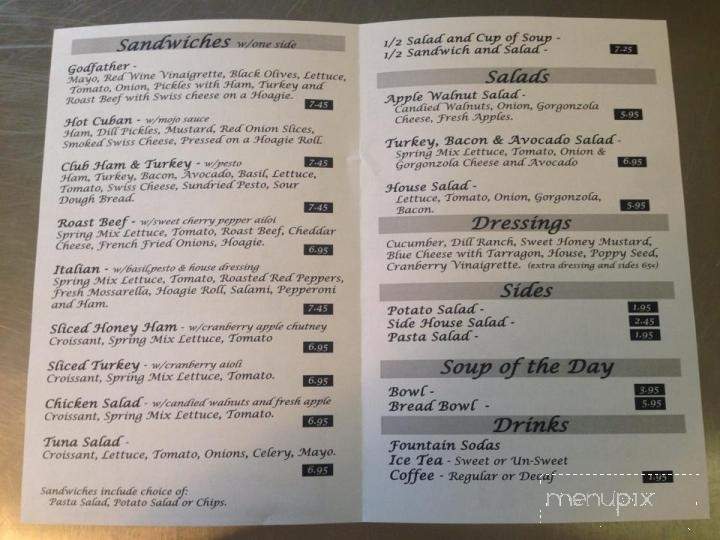 Sandwiches w/one side
Godfather -
Mayo, Red Wine Vinaigrette, Black Olives, Lettuce,
Tomato, Onion, Pickles with Ham, Turkey and
Roast Beef with Swiss cheese on a Hoagie.
7.45
Hot Cuban - w/mojo sauce
Ham, Dill Pickles, Mustard, Red Onion Slices,
Smoked Swiss Cheese, Pressed on a Hoagie Roll.
7.45
Club Ham & Turkey - w/pesto
Ham, Turkey, Bacon, Avocado, Basil, Lettuce,
Tomato, Swiss Cheese, Sundried Pesto, Sour
Dough Bread.
7.45
Roast Beef - w/sweet cherry pepper ailoi
Spring Mix Lettuce, Tomato, Roast Beef, Cheddar
Cheese, French Fried Onions, Hoagie.
6.95
Italian - w/basil,pesto & house dressing
Spring Mix Lettuce, Tomato, Roasted Red Peppers,
Fresh Mossarella, Hoagie Roll, Salami, Pepperoni
and Ham.
7.45
Sliced Honey Ham - w/cranberry apple chutney
Croissant, Spring Mix Lettuce, Tomato
6.95
Sliced Turkey - w/cranberry aioli
Croissant, Spring Mix Lettuce, Tomato.
6.95
Chicken Salad - w/candied walnuts and fresh apple
Croissant, Spring Mix Lettuce, Tomato.
6.95
Tuna Salad -
Croissant, Lettuce, Tomato, Onions, Celery, Mayo.
6.95
Sandwiches include choice of:
Pasta Salad, Potato Salad or Chips.
1/2 Salad and Cup of Soup -
1/2 Sandwich and Salad - 7.25
Salads
Apple Walnut Salad -
Candied Walnuts, Onion, Gorgonzola
Cheese, Fresh Apples. 5.95
Turkey, Bacon & Avocado Salad -
Spring Mix Lettuce, Tomato, Onion &
Gorgonzola Cheese and Avocado 6.95
House Salad -
Lettuce, Tomato, Onion, Gorgonzola,
Bacon. 5.95
Dressings
Cucumber, Dill Ranch, Sweet Honey Mustard,
Blue Cheese with Tarragon, House, Poppy Seed,
Cranberry Vinaigrette. (extra dressing and sides 65¢)
Sides
Potato Salad - 1.95
Side House Salad - 2.45
Pasta Salad - 1.95
Soup of the Day
Bowl - 3.95
Bread Bowl - 5.95
Drinks
Fountain Sodas
Ice Tea - Sweet or Un-Sweet
Coffee - Regular or Decaf 1.95
menupix